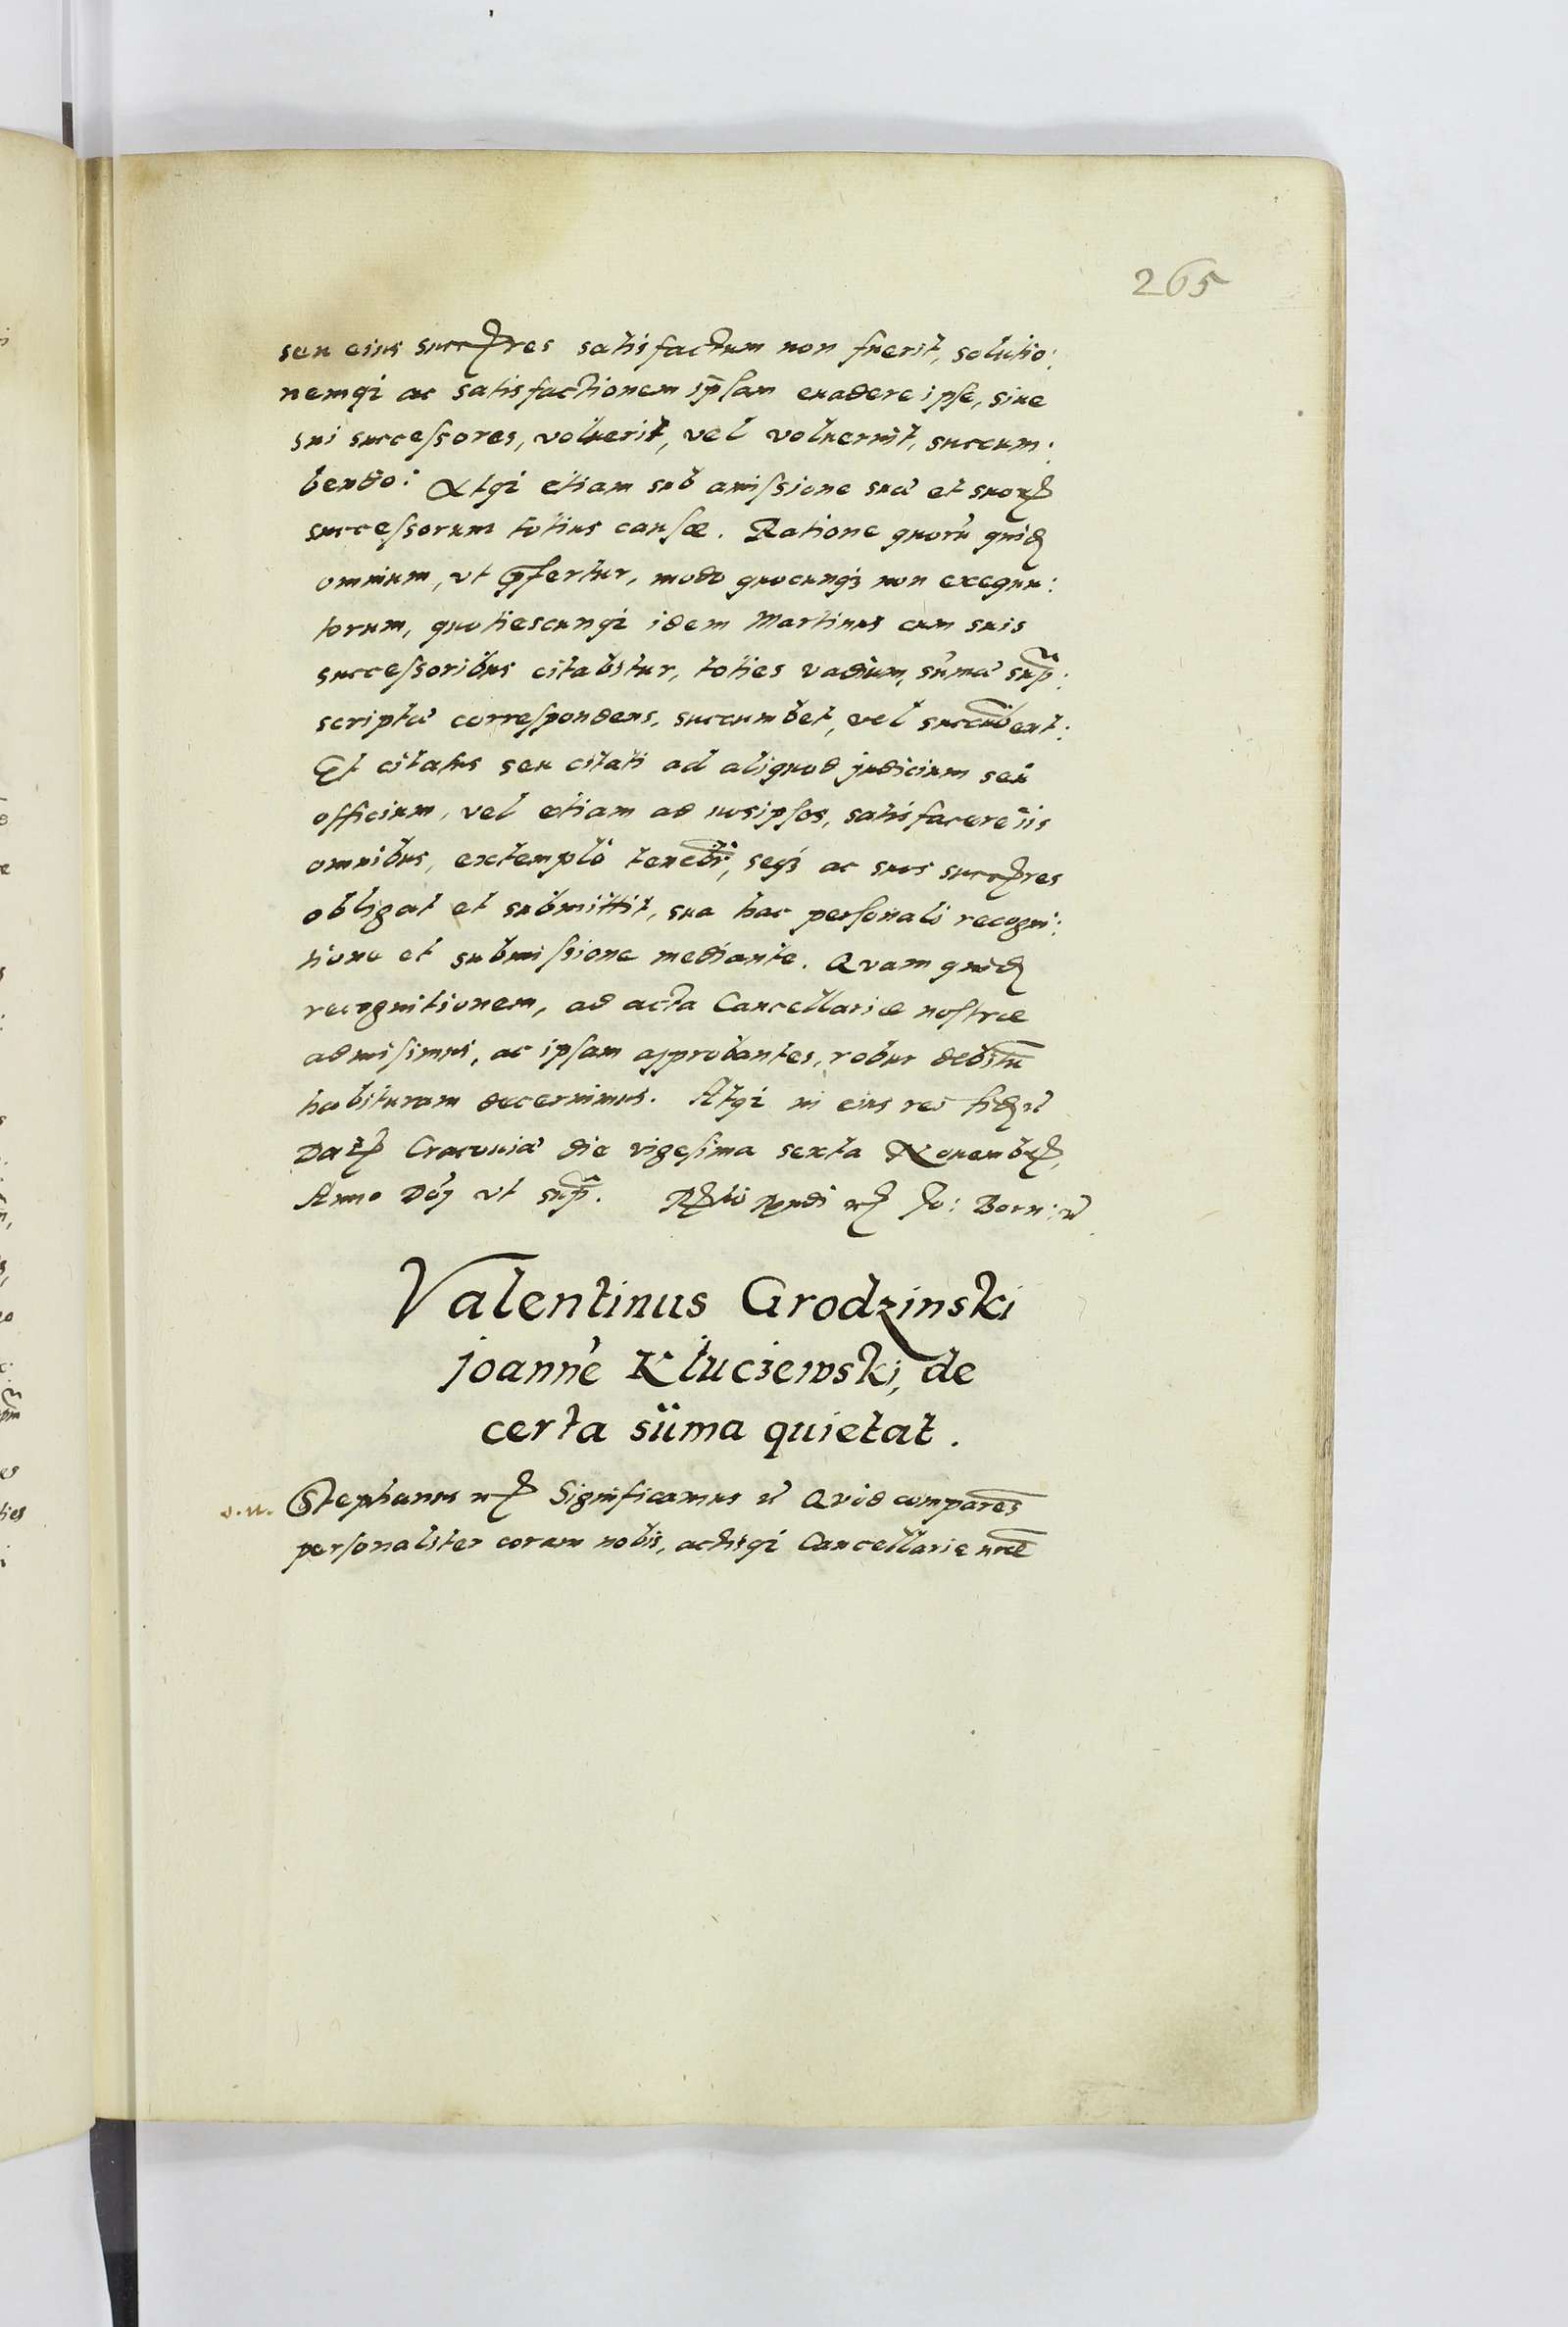 265
seu eius succ̃res satisfactum non fuerit, solutio:
nemq; ac satisfactionem ip̃sam euadere ipse, siue
sui successores, voluerit, vel voluerint, succum:
bendo: Atq; etiam sub amissione sua et suoru͂
successorum totius causæ. Ratione quorũ quid͂
omnium, vt p̃fertur, modo quocunq; non exequu:
torum, quotiescunq; idem Martinus cum suis
successoribus citabitur, toties vadium, sũmæ sup̃:
scriptæ correspondens, succumbet, vel succũbent:
Et citatus seu citati ad aliquod judicium seu
officium, vel etiam ad nosipsos, satisfacere iis
omnibus, extemplo tenebr̃, seq; ac suos succ̃res
obligat et submittit, sua hac personali recogni:
tione et submissione mediante. Quam quid͂
recognitionem, ad acta Cancellariæ nostræ
admisimus, ac ipsam approbantes, robur debitũ
habituram decernimus. Atq; in eius rei fid͂ &
Dat͂ Cracouiæ die vigesima sexta Nouemb͂,
Anno Dñj vt sup̃. Jo: Born: &
Valentinus Grodzinski
joannẽ Kluczewski, de
certa sũma quietat.
v.u. Stephanus &c͂ Significamus & Quod comparẽs
personaliter coram nobis, actisq; Cancellarie nr̃æ